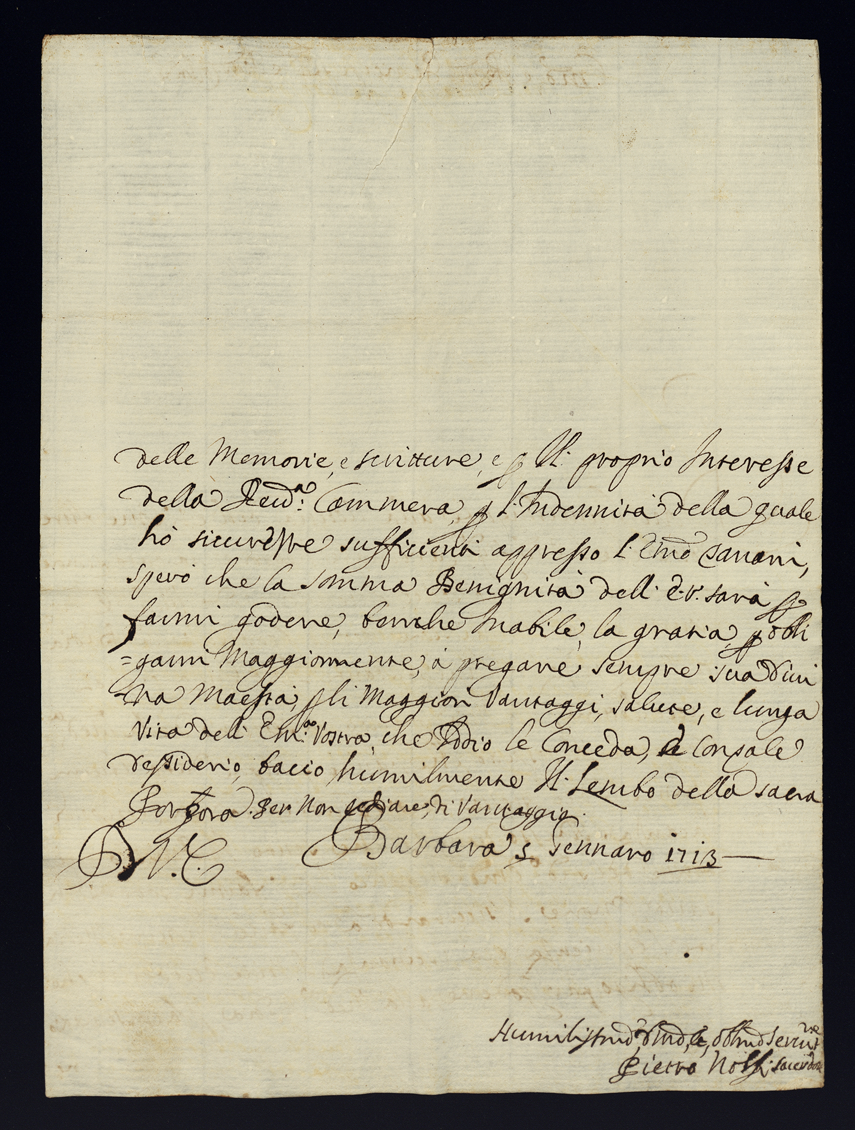 delle Memorie, e scritture, e p Il proprio Interesse
della Reud.a Cammera, p l'Indennità della quale
hò sicurezze sufficienti appresso l'Emo
spero che la somma Benignità dell' E.V. sarà p
farmi godere, benche Inabile, la gratia p obli
=garmi Maggiormente, à pregare sempre sua Divi
na Maestà, p li Maggiori Vantaggi, salute, e lunga
Vita dell' Em.a Vostra, che Iddio le Conceda, è Con tale
dessiderio, bacio humilmente Il Lembo della sacra
Porpora. Per Non tediare, di Vantaggio.
D.V.E. Barbara 5 Gennaro 1713
Humilissmo, Dmo, e, obbmo Servit.re
Pietro